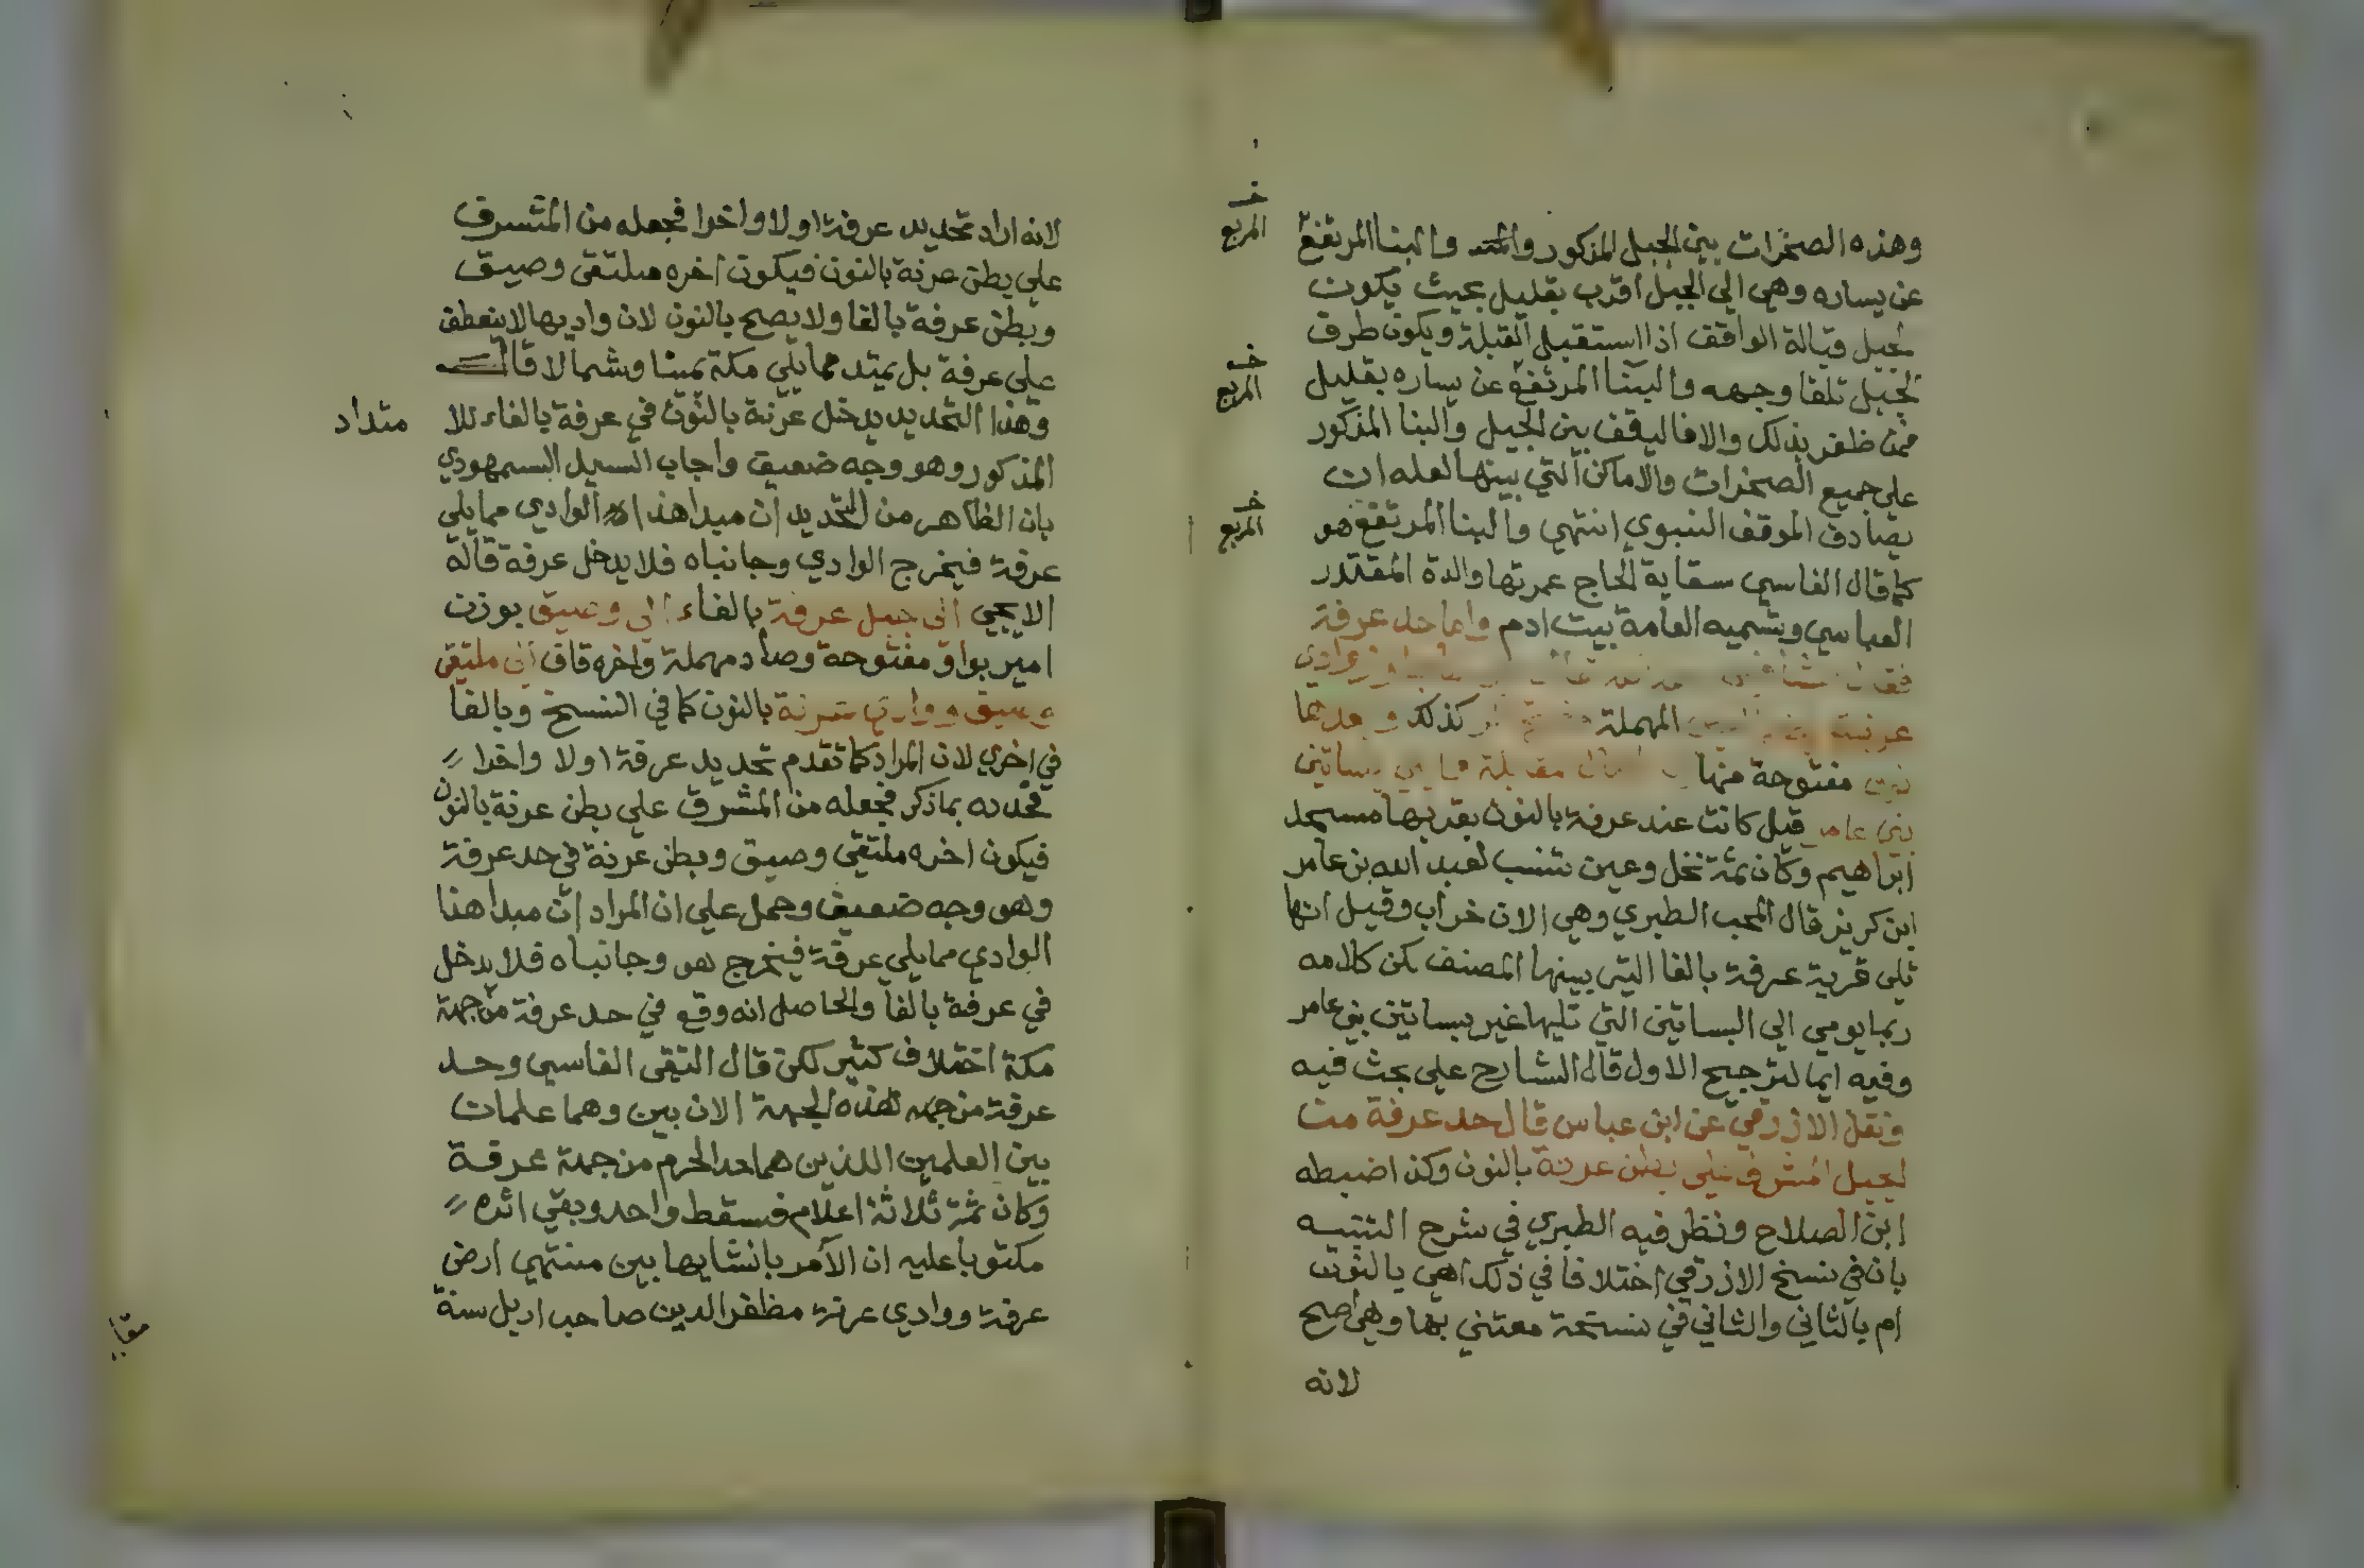 وهذه الصخرات بين الجبل المذكور والبنا المرتفع
عن يساره وهي الي الجبل اقرب بقليل بحيث يكون
الجبل قبالة الواقف اذا استقبل القبلة ويكون طرف
الجبل تلقا وجهه والبنا المرتفع عن يساره بقليل
فمن ظفر بذلك والا فاليقف بين الجبل والبنا المذكور
علي جميع الصخرات والاماكن التي بينها لعله ان
يصادف الموقف النبوي انتهي والبنا المرتفع هو
كما قال الفاسي سقاية الحاج عمرتها والدة المقتدر
العباسي وتسميه العامة بيت ادم واما حد عرفة
وادي
عرنة المهملة كذلك وبعدها
نون مفتوحة منها مقبلة مما يلي بساتين
بني عامر قيل كانت عند عرفة بالنون بقربها مسجد
ابراهيم وكان ثمة نخل وعين تنسب لعبد الله بن عامر
ابن كريز قال المحب الطبري وهي الان خراب وقيل انها
تلي قرية عرفة بالفا التي بينها المصنف لكن كلامه
ربما يومي الي البساتين التي تليها غير بساتين بني عامر
وفيه ايما لترجيح الاول قاله الشارح علي بحث فيه
ونقل الازرقي عن ابن عباس قال حد عرفة من
الجبل المشرف علي بطن عرنة بالنون وكذا ضبطه
ابن الصلاح ونظر فيه الطبري في شرح التنبيه
بان في نسخ الازرقي اختلافا في ذلك اهي بالنون
ام بالثاني والثاني في نسخة معتني بها وهي اصح
لانه
خـ
المربع
خـ
المربع
خـ
المربع
لانه اراد تحديد عرفة اولا واخرا فجعله من المشرف
علي بطن عرنة بالنون فيكون اخره ملتقي وصيق
وبطن عرفة بالفا ولا يصح بالنون لان واديها لا ينعطف
علي عرفة بل يمتد مما يلي مكة يمينا وشمالا قال
وهذا التحديد يدخل عرنة بالنون في عرفة بالفاء للا
متداد
المذكور وهو وجه ضعيف واجاب السيد السمهودي
بان الظاهر من التحديد ان مبدا هذا الوادي مما يلي
عرفة فيخرج الوادي وجانباه فلا يدخل عرفة قاله
الايجي الي جبل عرفة بالفاء الي وصيق بوزن
امير بواو مفتوحة وصاد مهملة واخره قاف الي ملتقي
وصيق ووادي عرنة بالنون كما في النسخ وبالفا
في اخري لان المراد كما تقدم تحديد عرفة اولا واخرا
فحدده بما ذكر فجعله من المشرف علي بطن عرنة بالنون
فيكون اخره ملتقي وصيق وبطن عرنة في حد عرفة
وهو وجه ضعيف وحمل علي ان المراد ان مبدا هذا
الوادي مما يلي عرفة فيخرج هو وجانباه فلا يدخل
في عرفة بالفا والحاصل انه وقع في حد عرفة من جهة
مكة اختلاف كثير لكن قال التقي الفاسي وحد
عرفة من جهه هذه الجهة الان بين وهما علمات
بين العلمين اللذين هما حد الحرم من جهة عرفة
وكان ثمة ثلاثة اعلام فسقط واحد وبقي اثره
مكتوبا عليه ان الامر بانشايها بين منتهي ارض
عرفة ووادي عرنة مظفر الدين صاحب اربل سنة